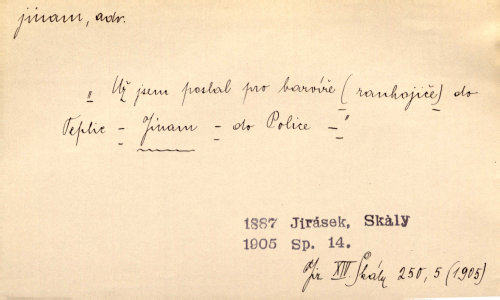 jinam, adv.
„ Už jsem poslal pro barvíře (ranhojiče) do
Teplic – Jinam – do Police – "
1887 Jirásek, Skály
1905 Sp. 14.
Jir XIV Skály 250, 5 (1905)